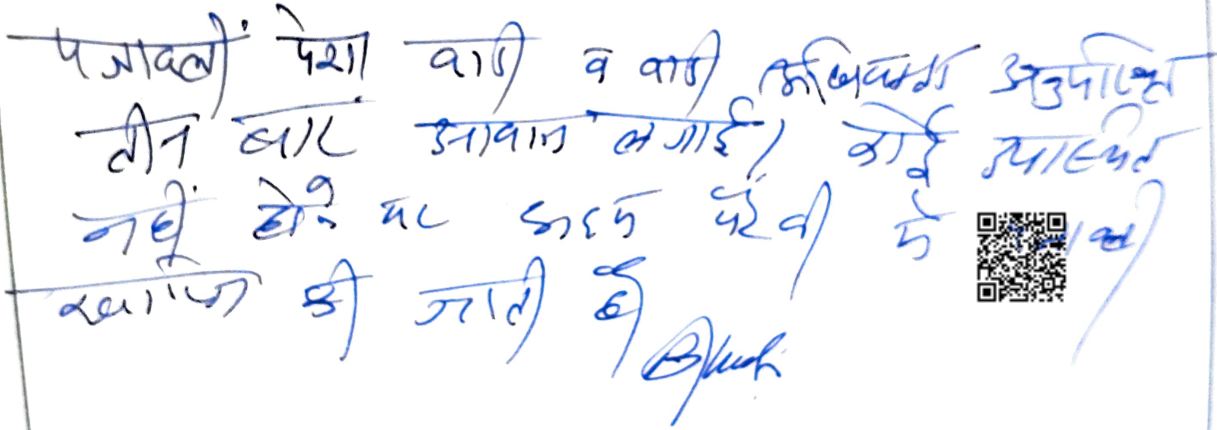 पत्रावली पेश। वादी व वादी अधिवक्ता अनुपस्थित
तीन बार आवाज लगाई। कोई उपस्थित
नहीं होने पर अदम पैरवी में
खारिज की जाती है